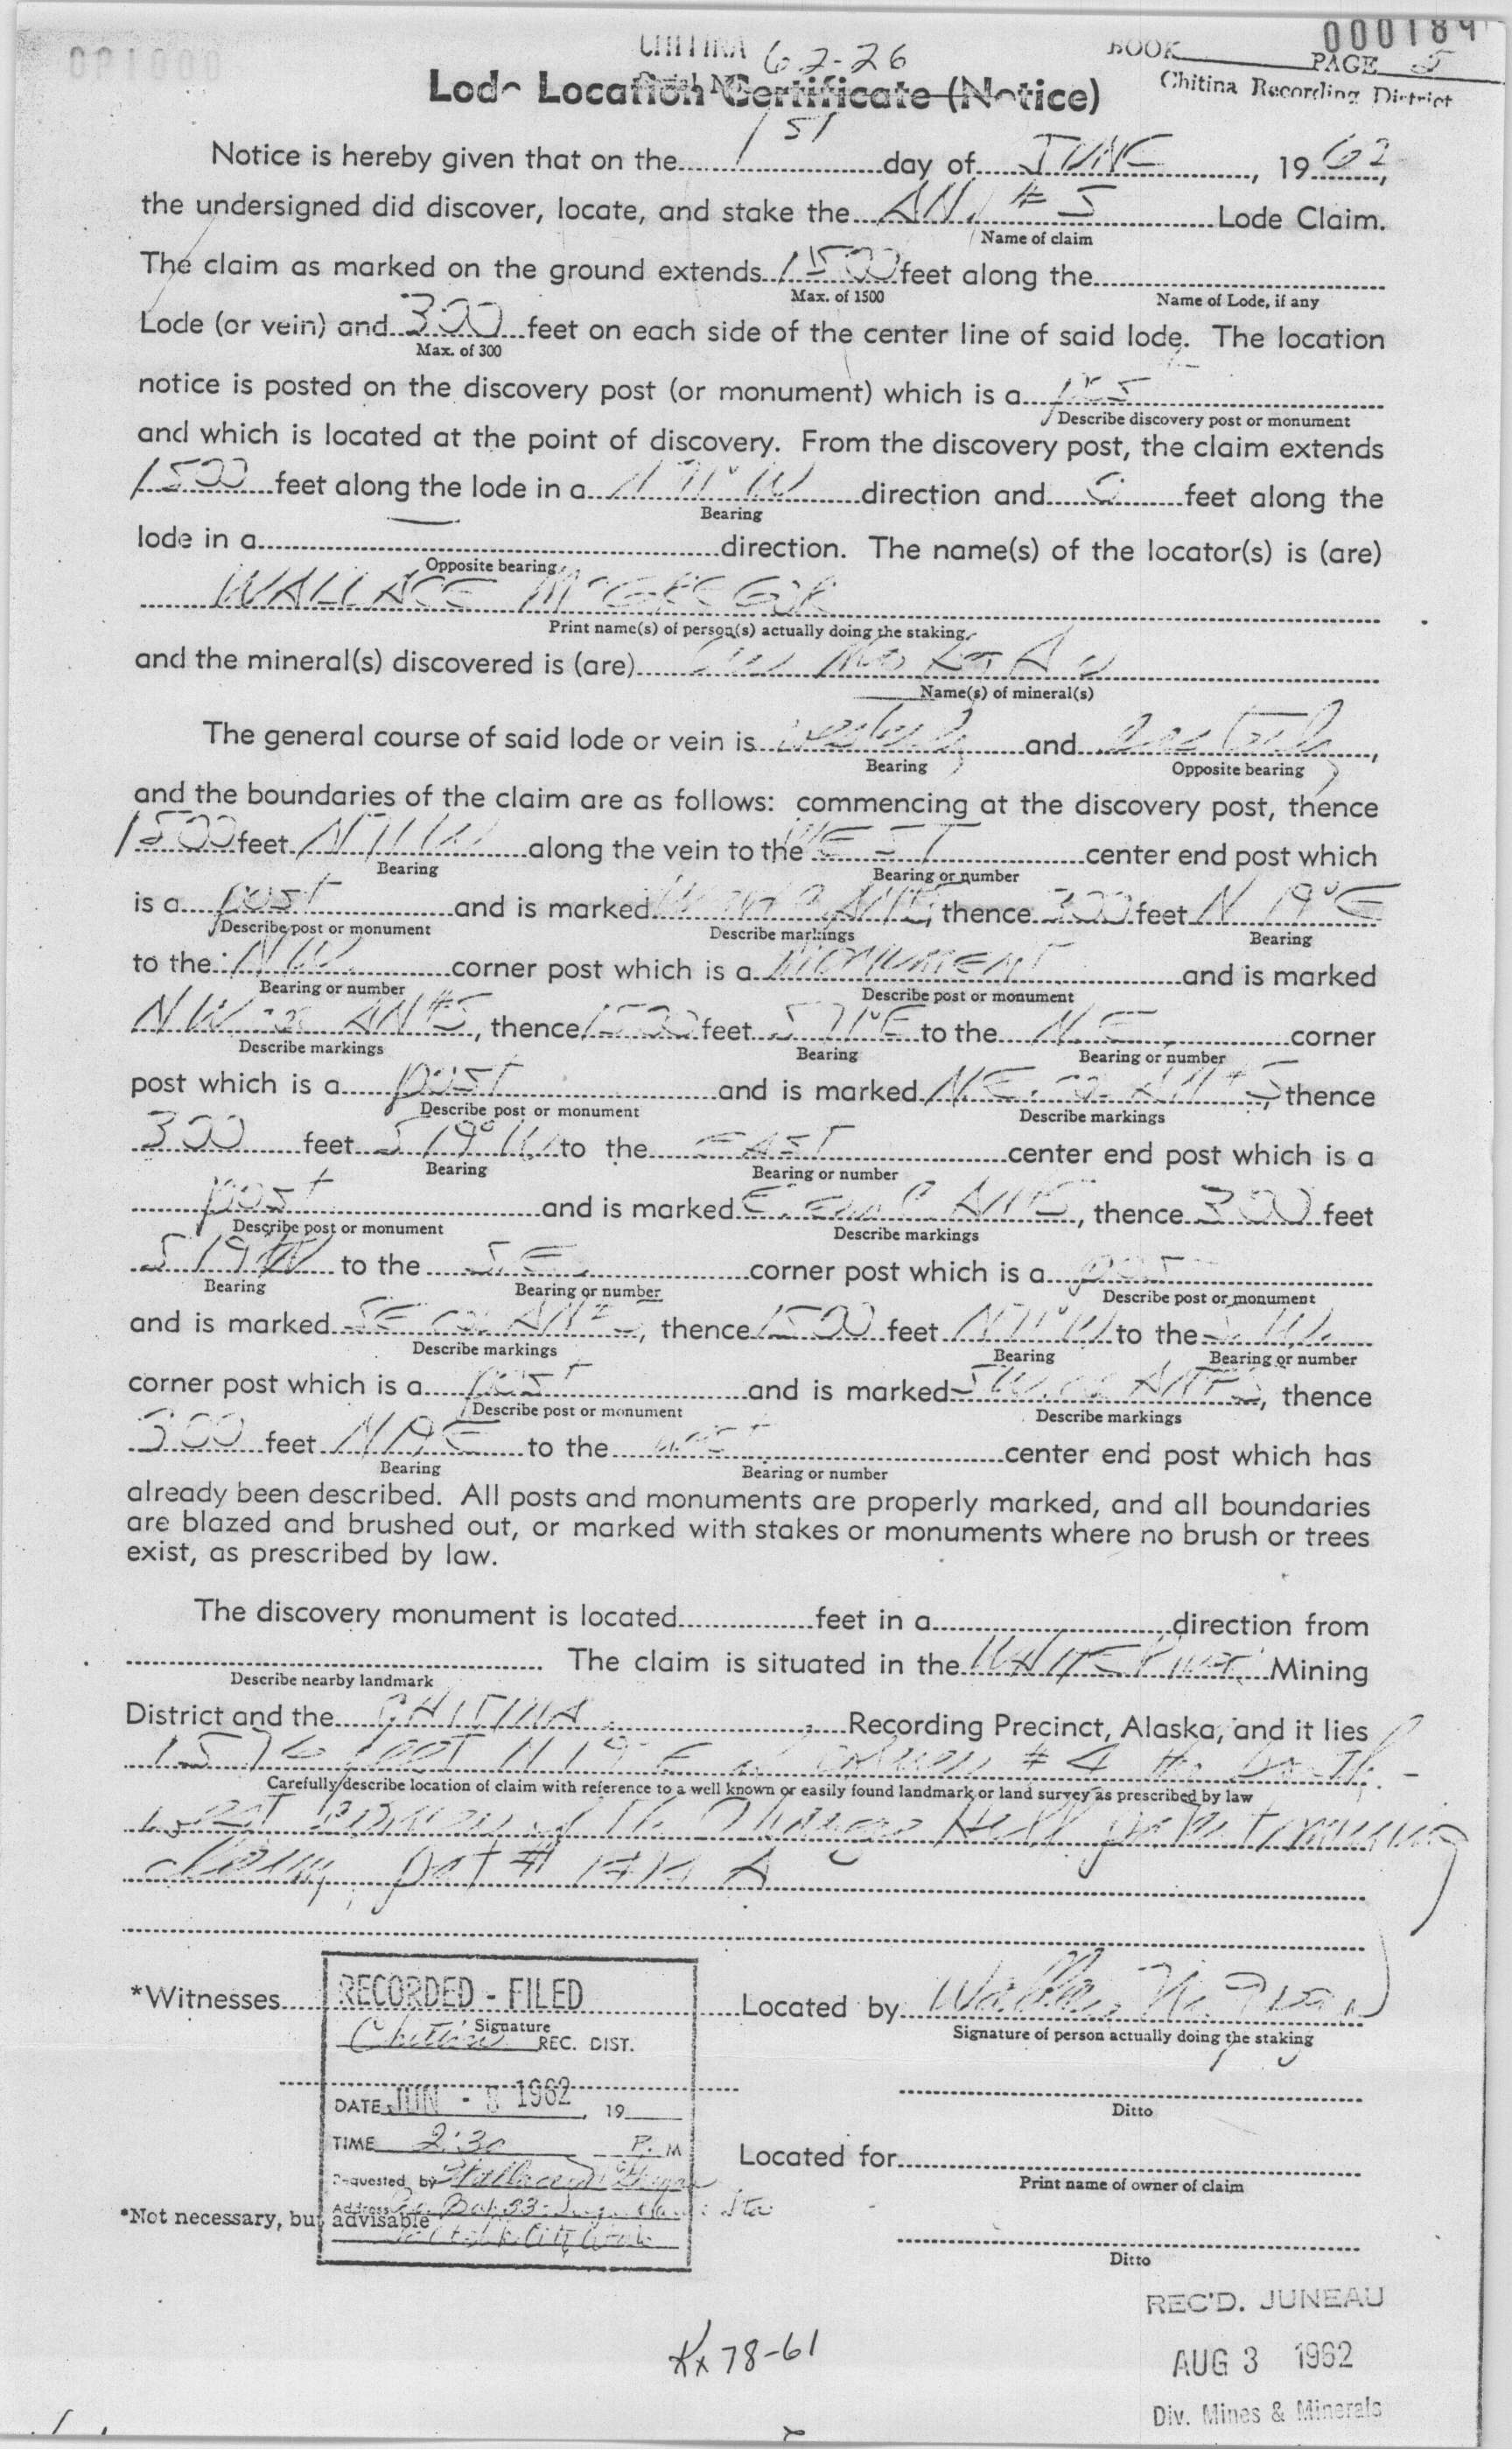 000189
CHITINA 62-26 BOOK PAGE 5
Serial No. Chitina Recording District
Lode Location Certificate (Notice)
Notice is hereby given that on the 1st day of JUNE, 1962,
the undersigned did discover, locate, and stake the AN #5 Lode Claim.
Name of claim
The claim as marked on the ground extends 1500 feet along the
Max. of 1500 Name of Lode, if any
Lode (or vein) and 300 feet on each side of the center line of said lode. The location
Max. of 300
notice is posted on the discovery post (or monument) which is a post
Describe discovery post or monument
and which is located at the point of discovery. From the discovery post, the claim extends
1500 feet along the lode in a N71°W direction and 0 feet along the
Bearing
lode in a — direction. The name(s) of the locator(s) is (are)
Opposite bearing
WALLACE McGREGOR
Print name(s) of person(s) actually doing the staking
and the mineral(s) discovered is (are) Cu Mo Ag Au
Name(s) of mineral(s)
The general course of said lode or vein is westerly and easterly,
Bearing Opposite bearing
and the boundaries of the claim are as follows: commencing at the discovery post, thence
1500 feet N71W along the vein to the WEST center end post which
Bearing Bearing or number
is a post and is marked AN#5, thence 300 feet N 19° E
Describe post or monument Describe markings Bearing
to the NW. corner post which is a MONUMENT and is marked
Bearing or number Describe post or monument
NW co. AN#5, thence 1500 feet S71°E to the N.E. corner
Describe markings Bearing Bearing or number
post which is a post and is marked N.E. co. AN#5 thence
Describe post or monument Describe markings
300 feet S 19° W to the EAST center end post which is a
Bearing Bearing or number
post and is marked E. End C. AN#5, thence 300 feet
Describe post or monument Describe markings
S19W to the S.E. corner post which is a post
Bearing Bearing or number Describe post or monument
and is marked SE co. AN#5, thence 1500 feet N71°W to the S.W.
Describe markings Bearing Bearing or number
corner post which is a post and is marked SW. co. AN#5, thence
Describe post or monument Describe markings
300 feet N19E to the west center end post which has
Bearing Bearing or number
already been described. All posts and monuments are properly marked, and all boundaries
are blazed and brushed out, or marked with stakes or monuments where no brush or trees
exist, as prescribed by law.
The discovery monument is located feet in a direction from
The claim is situated in the WHITE River Mining
Describe nearby landmark
District and the CHITINA Recording Precinct, Alaska, and it lies
feet N 19° E of corner #4 the South-
Carefully describe location of claim with reference to a well known or easily found landmark or land survey as prescribed by law
west corner of the patent mining
claim, pat #
*Witnesses RECORDED - FILED Located by Wallace McGregor
Signature Signature of person actually doing the staking
Chitina REC. DIST.
DATE JUN - 8 1962, 19
Ditto
TIME 2:30 P. M
Located for
Requested by Wallace McGregor
Print name of owner of claim
Address Box 33 Sta
*Not necessary, but advisable
Ditto
REC'D. JUNEAU
Kx 78-61
AUG 3 1962
Div. Mines & Minerals